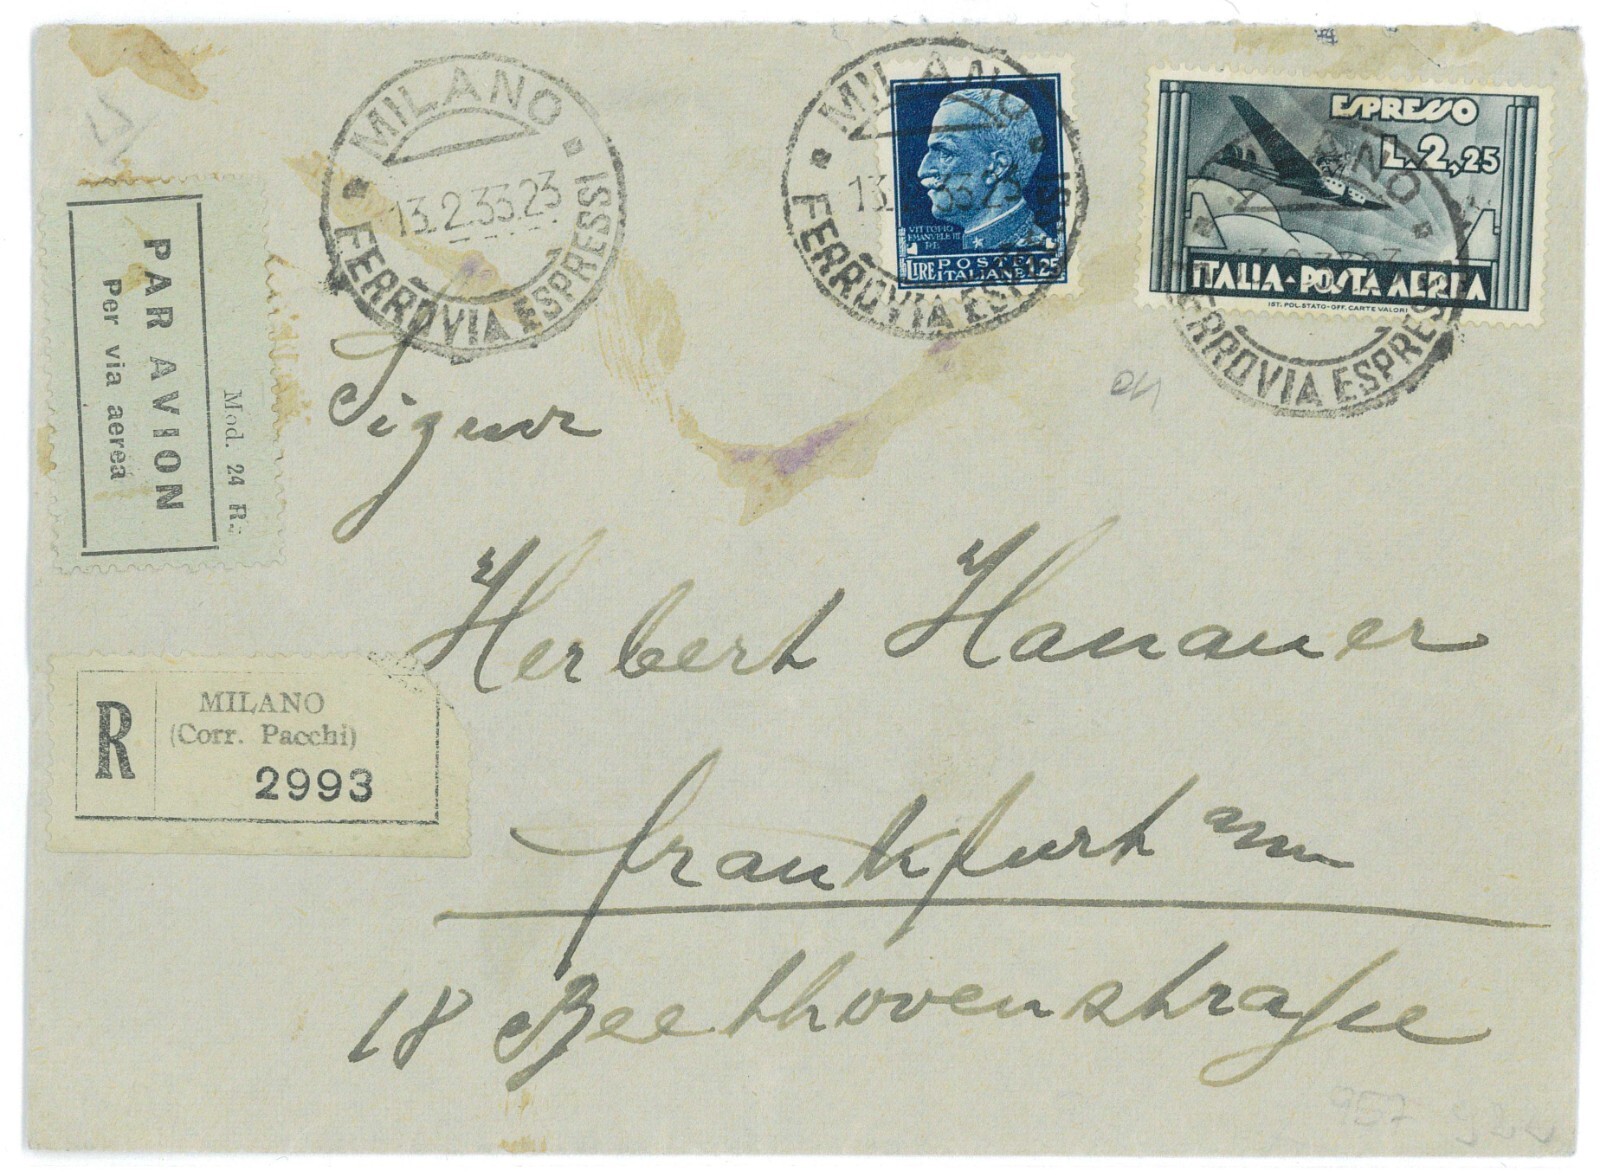 MILANO
13.2.33.23
FERROVIA ESPRESSI
MILANO
13. 33 23
FERROVIA ESP
VITTORIO
EMANUELE III
RE
POSTE
LIRE ITALIANE 1,25
ESPRESSO
L.2,25
ITALIA-POSTA AEREA
IST. POL. STATO-OFF. CARTE VALORI
ANO
FERROVIA ESPRES
PAR AVION
Per via aerea
Mod. 24 R.
R
MILANO
(Corr. Pacchi)
2993
Signor
Herbert Hanauer
Frankfurt am
18 Beethovenstraße
957